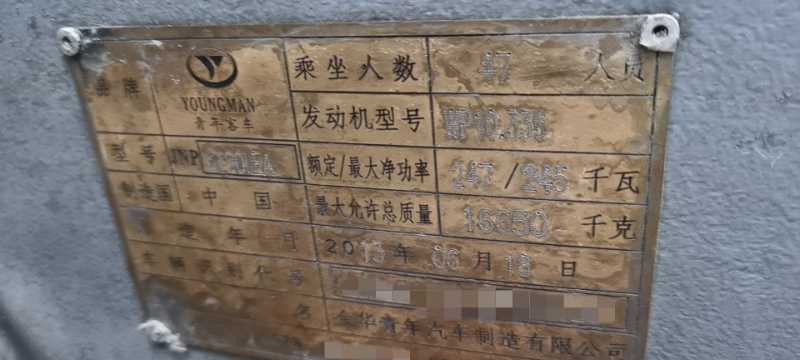 品牌 YOUNGMAN 青年客车 乘坐人数 47 人员
发动机型号 WP10.336
型号 JNP 额定/最大净功率 247/245 千瓦
制造国 中国 最大允许总质量 16550 千克
年 月 2013 年 06 月 18 日
车辆 代号
名 金华青年汽车制造有限公司